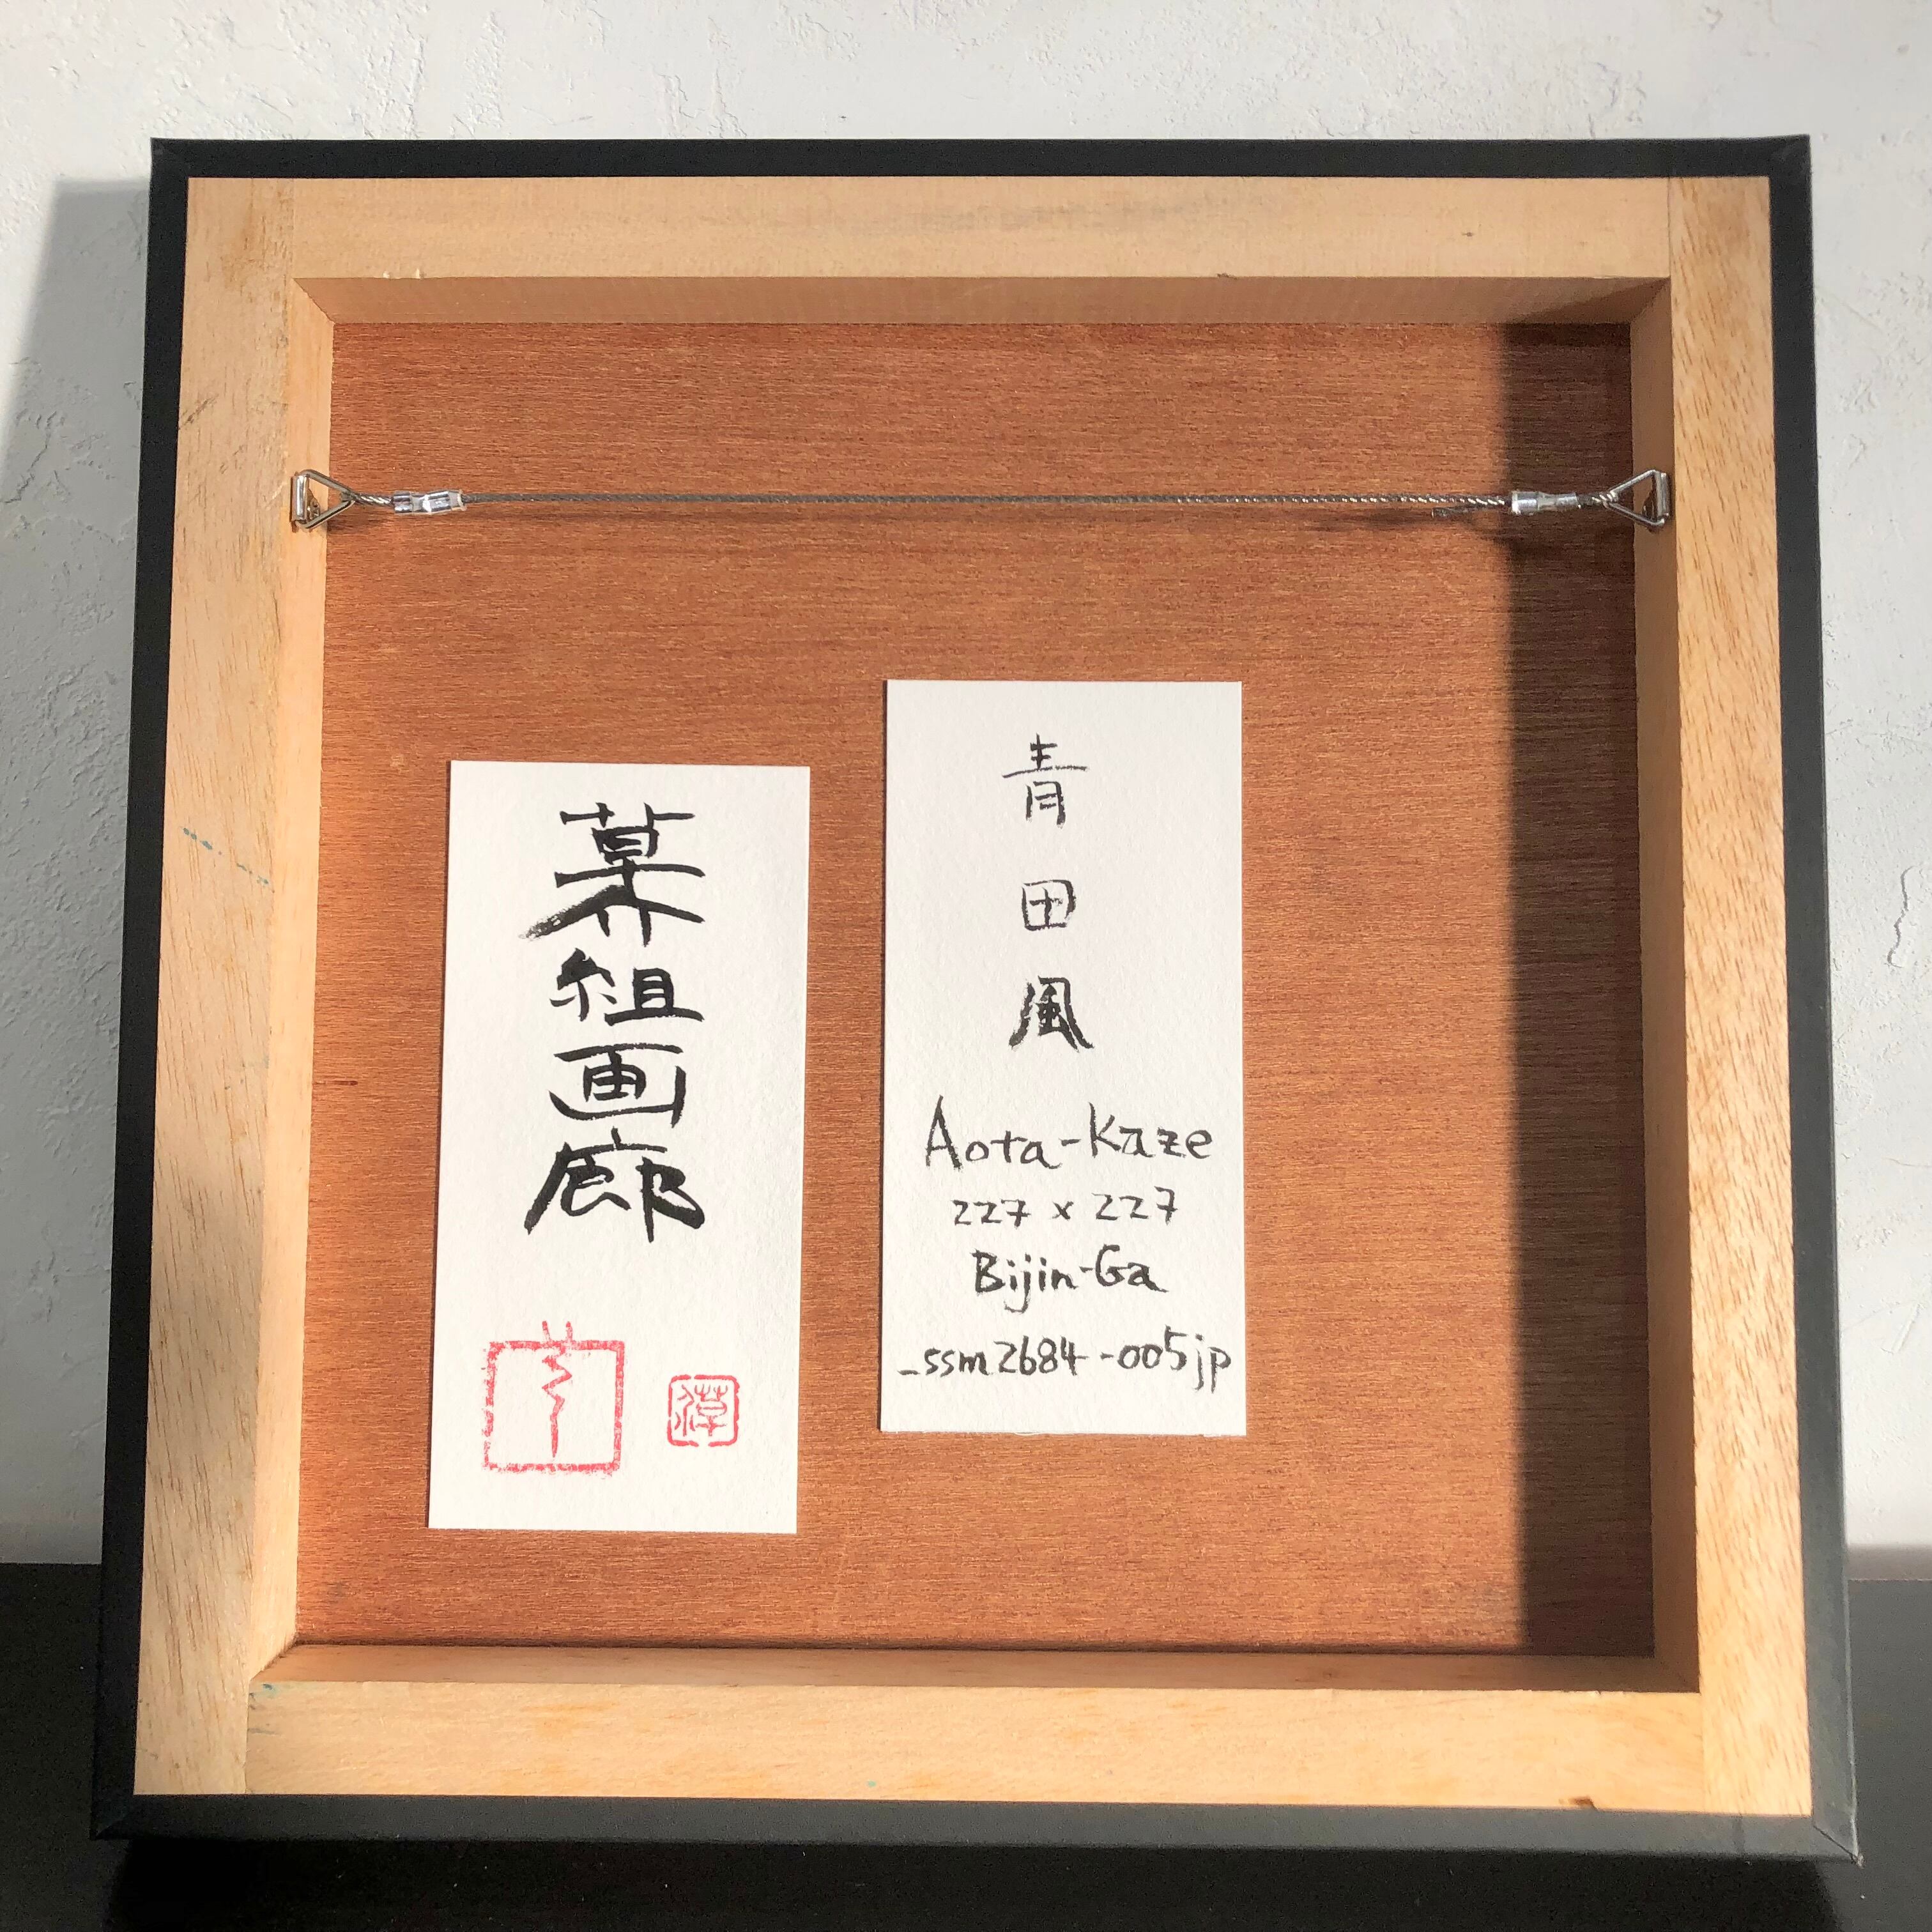 青田風
Aota-Kaze
227 x 227
Bijin-Ga
-ssm2684-005jp
組画廊